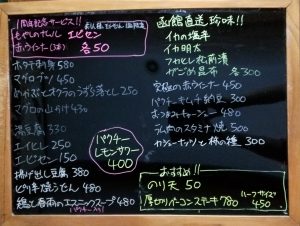 1周年記念サービス!!
もやしのナムル エビセン
赤ウインナー(3本) 各50
ホタテ刺身 580
マグロブツ 450
マグロの山かけ 430
湯豆腐 330
エイヒレ 250
エビセン 150
揚げ出し豆腐 380
ピリ辛焼うどん 480
鶏と春雨のエスニックスープ 480
パクチー入り
パクチー
レモンサワー
400
函館直送珍味!!
イカの塩辛
イカ明太
フカヒレ松前漬
ザーサイ昆布 各300
究極の赤ウインナー 450
パクチーキムチ納豆 300
おつまみチャーシュー 480
砂肝のスタミナ焼 500
カシューナッツと柿の種 300
おすすめ!!
のり天 50
厚切りベーコンステーキ 780
ハーフサイズ
450